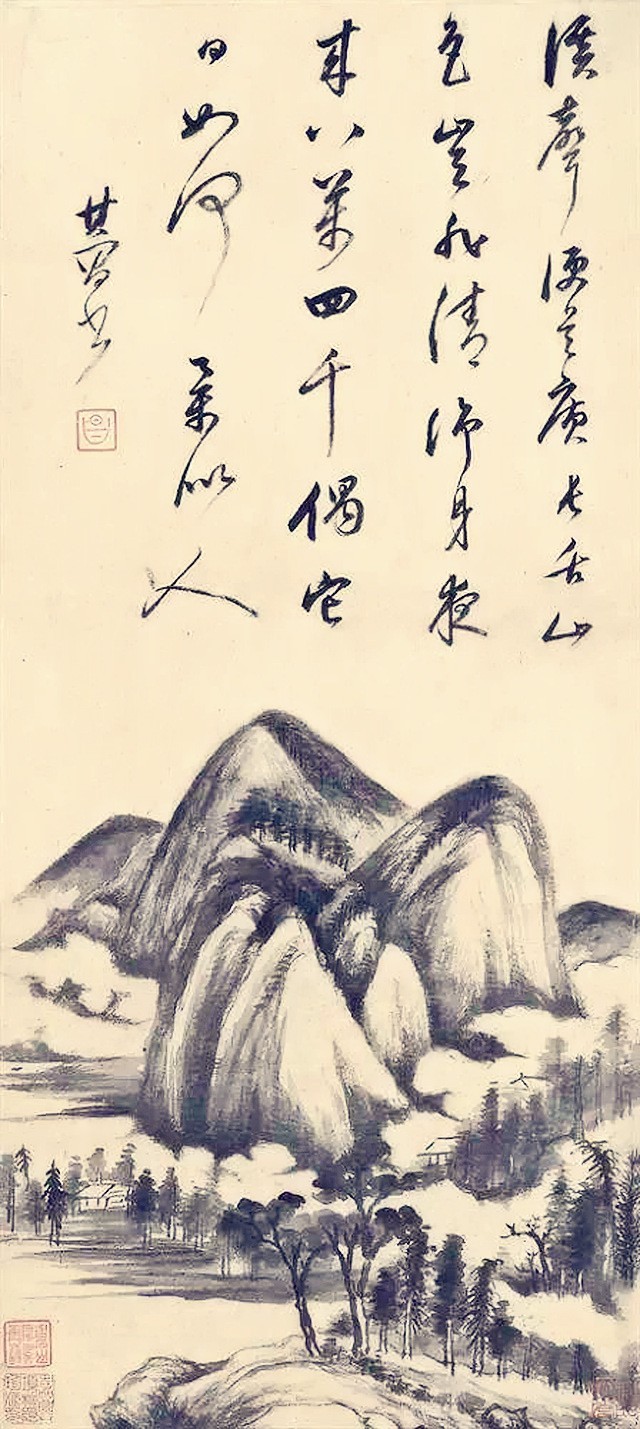 溪聲便是廣長舌山
色豈非清淨身夜
來八萬四千偈它
日如何舉似人
其昌書
昌